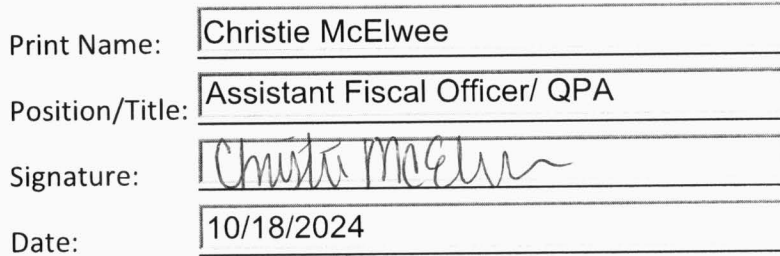 Print Name: Christie McElwee
Position/Title: Assistant Fiscal Officer/ QPA
Signature: Christie McElwee
Date: 10/18/2024